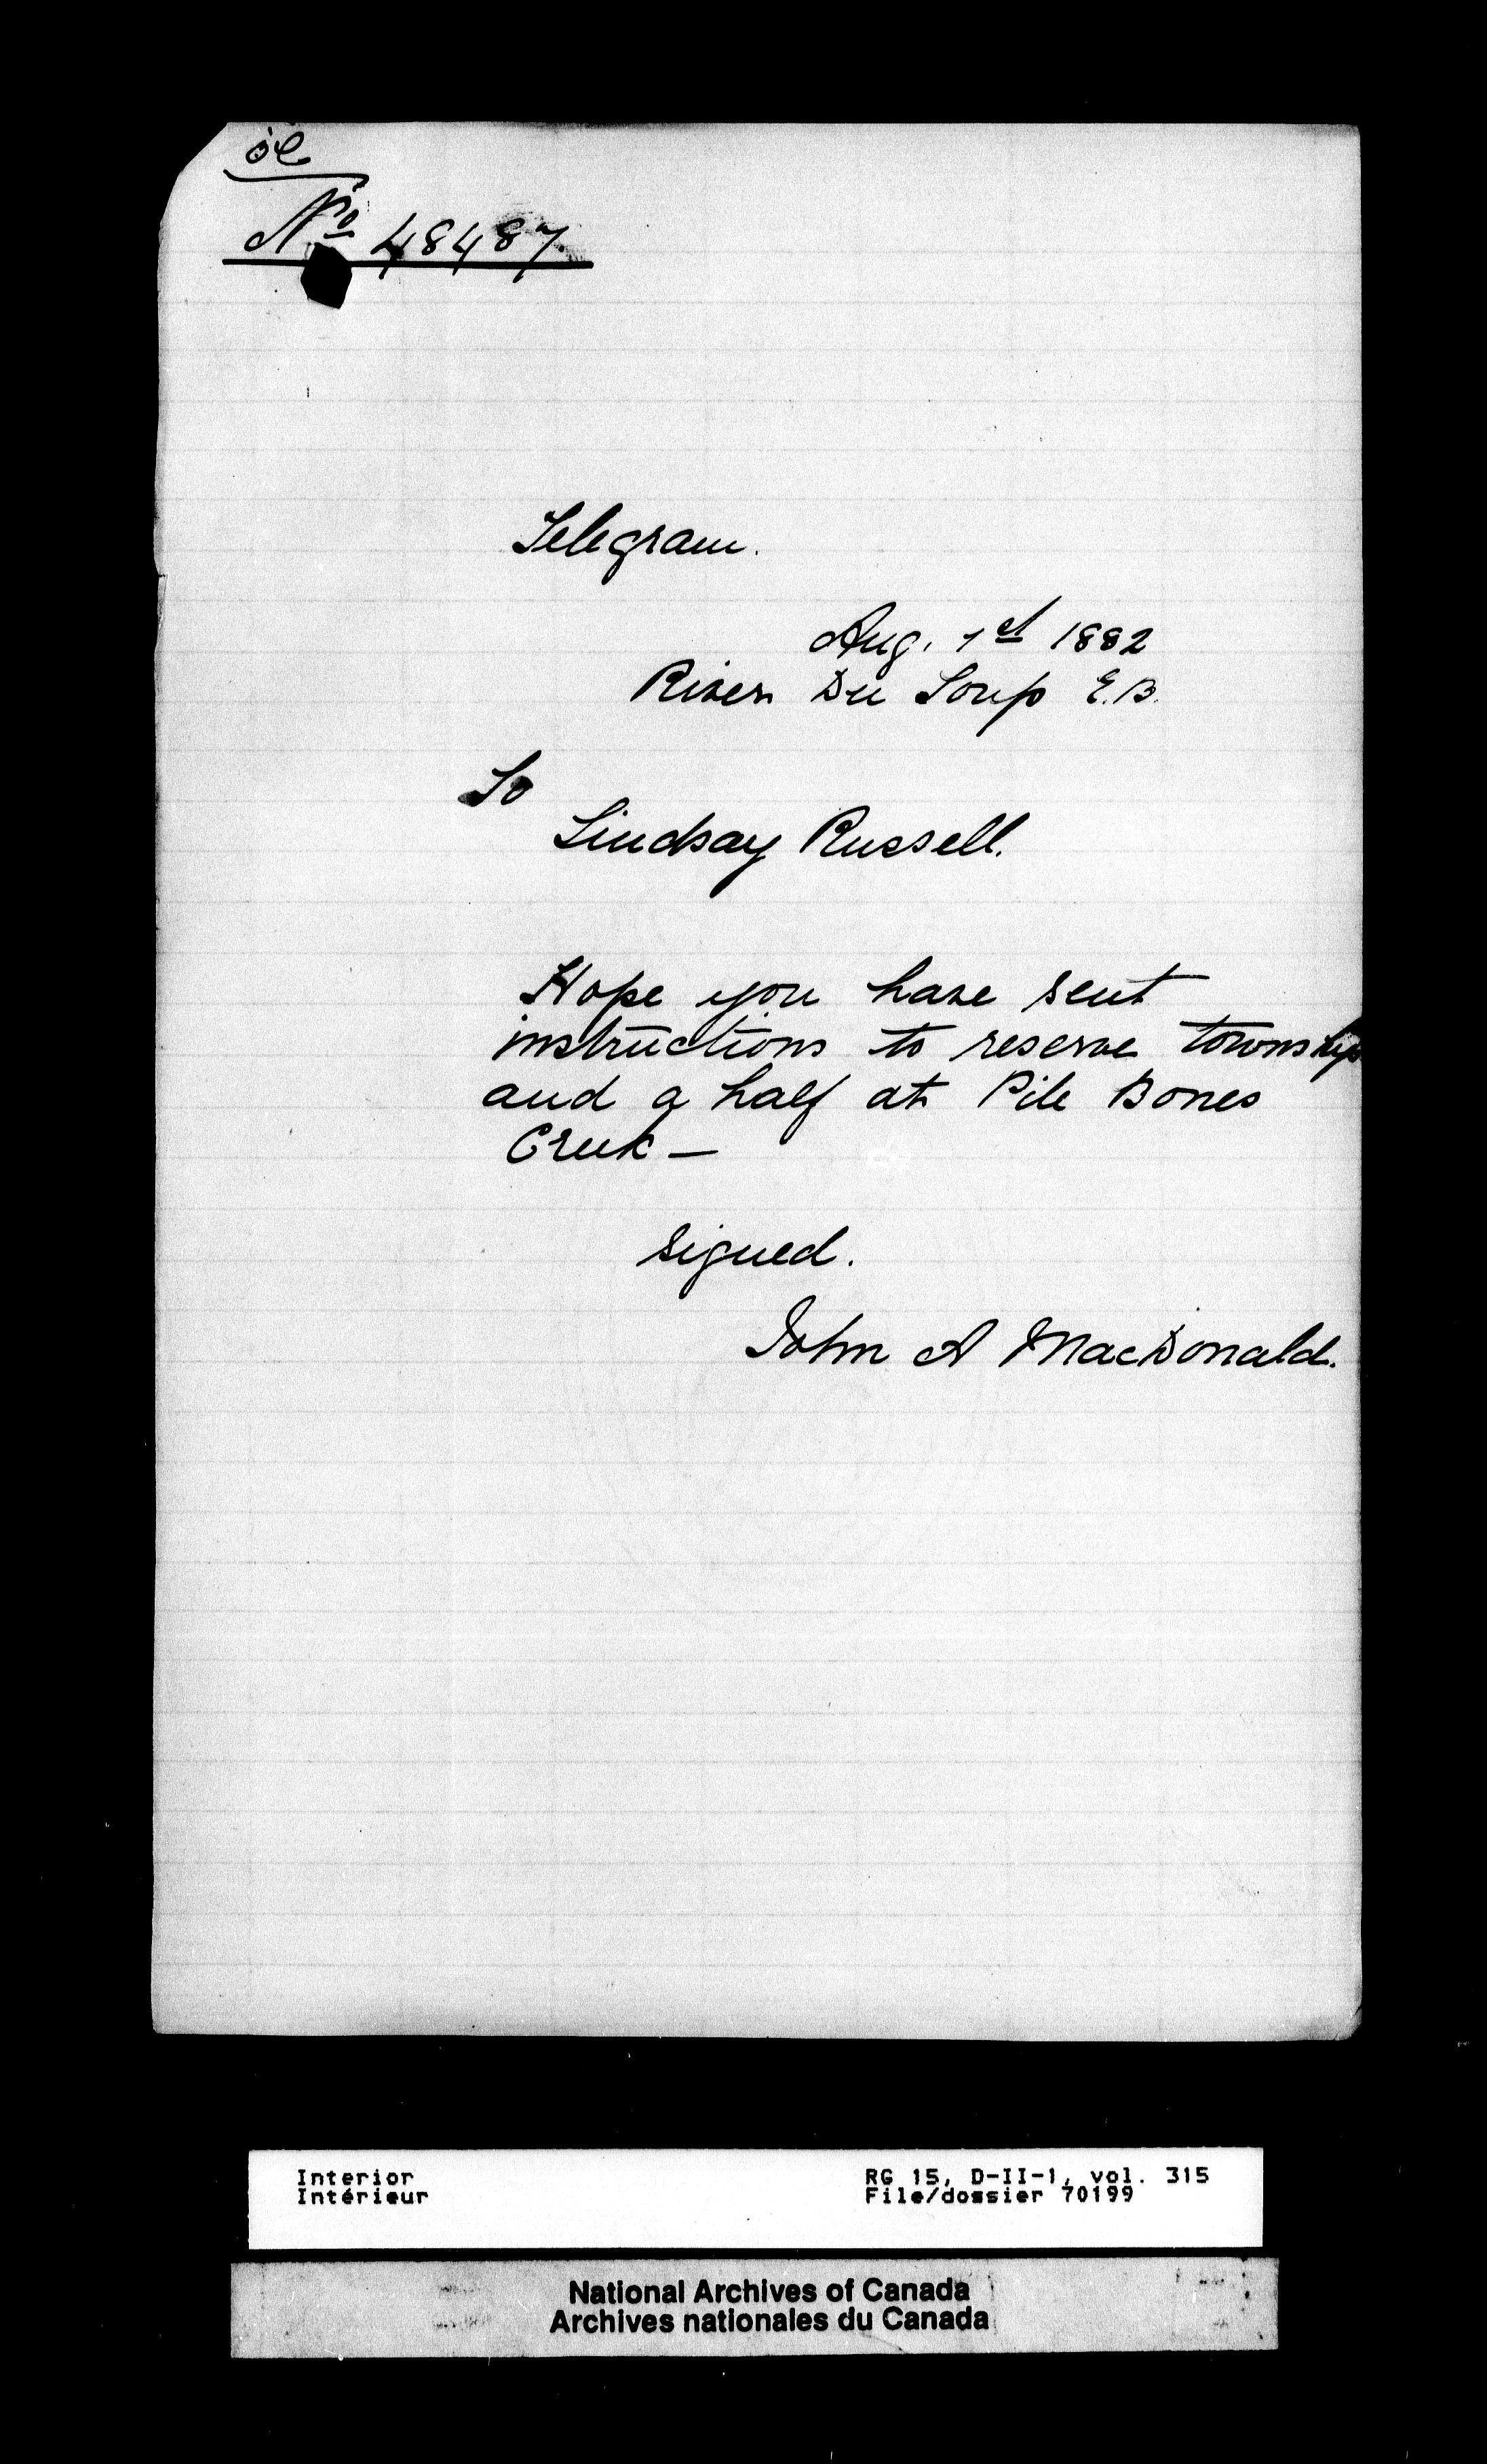 No 48487
Telegram.
Aug. 1st 1882
River Du Loup E.B.
To
Lindsay Russell.
Hope you have sent
instructions to reserve township
and a half at Pile Bones
Creek —
signed.
John A MacDonald.
Interior
Intérieur
RG 15, D-II-1, vol. 315
File/dossier 70199
National Archives of Canada
Archives nationales du Canada